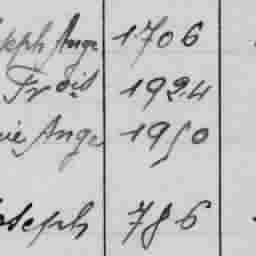 Joseph Ange 1706
Frois 1924
Marie Ange 1950
Joseph 786